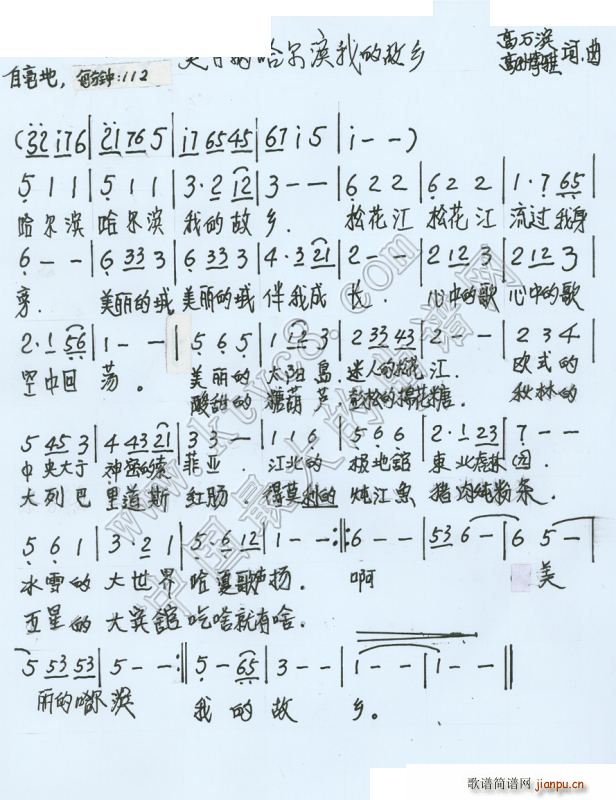 美丽的哈尔滨我的故乡
高万滨
词.曲
自豪地, 每分钟:112
(32 i76 | 2i 76 5 | i7 65 45 | 67 i 5 | i - - )
5 1 1 | 5 1 1 | 3·2 12 | 3 - - | 6 2 2 | 6 2 2 | 1·7 65 |
哈尔滨 哈尔滨 我的故 乡. 松花江 松花江 流过我身
6 - - | 6 33 3 | 6 33 3 | 4·3 21 | 2 - - | 2 12 3 | 2 12 3 |
旁. 美丽的城 美丽的城 伴我成 长. 心中的歌 心中的歌
2·1 56 | 1 - - | 5 6 5 | 1 12 3 | 2 33 43 | 2 - - | 2 3 4 |
空中回 荡。 美丽的 太阳岛 迷人的松花 江. 欧式的
酸甜的 糖葫芦 彭松的棉花 糖. 秋林的
5 45 3 | 4 43 21 | 3 3 - | 1 1 6 | 5 6 6 | 2·1 23 | 7 - - |
中央大于 神密的索 菲亚. 江北的 极地馆 东北虎林 园.
大列巴 里道斯 红肠. 得莫利的 炖江鱼 猪肉炖粉 条.
5 6 1 | 3·2 1 | 5·6 12 | 1 - - :||: 6 - - | 53 6 - | 6 5 - |
冰雪的 大世界 哈夏歌声 扬. 啊 美
五星的 大宾馆 吃啥就有 啥.
5 53 53 | 5 - - :|| 5 - 65 | 3 - - | 1 - - | 1 - - ||
丽的哈尔滨 我的故 乡。
www.ktvc8.com
中国最大的曲谱网
歌谱简谱网
jianpu.cn